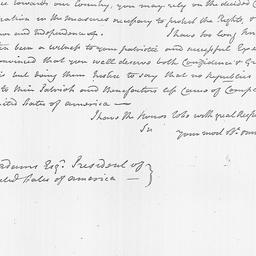 ce towards our Country, you may rely on the decided Co
eration in the measures necessary to protect the Rights, &
nor and Independence of. I have too long kn
e been a witness to your patriotic and successful Exer
convinced that you well deserve both Confidence & Gra
is but doing them Justice to say that no Republic
to their Patriots and Benefactors
nited States of america —
I have the Honor to be with great Respect
Sir
your most Ob
adams Esqr. President of
ited States of america —